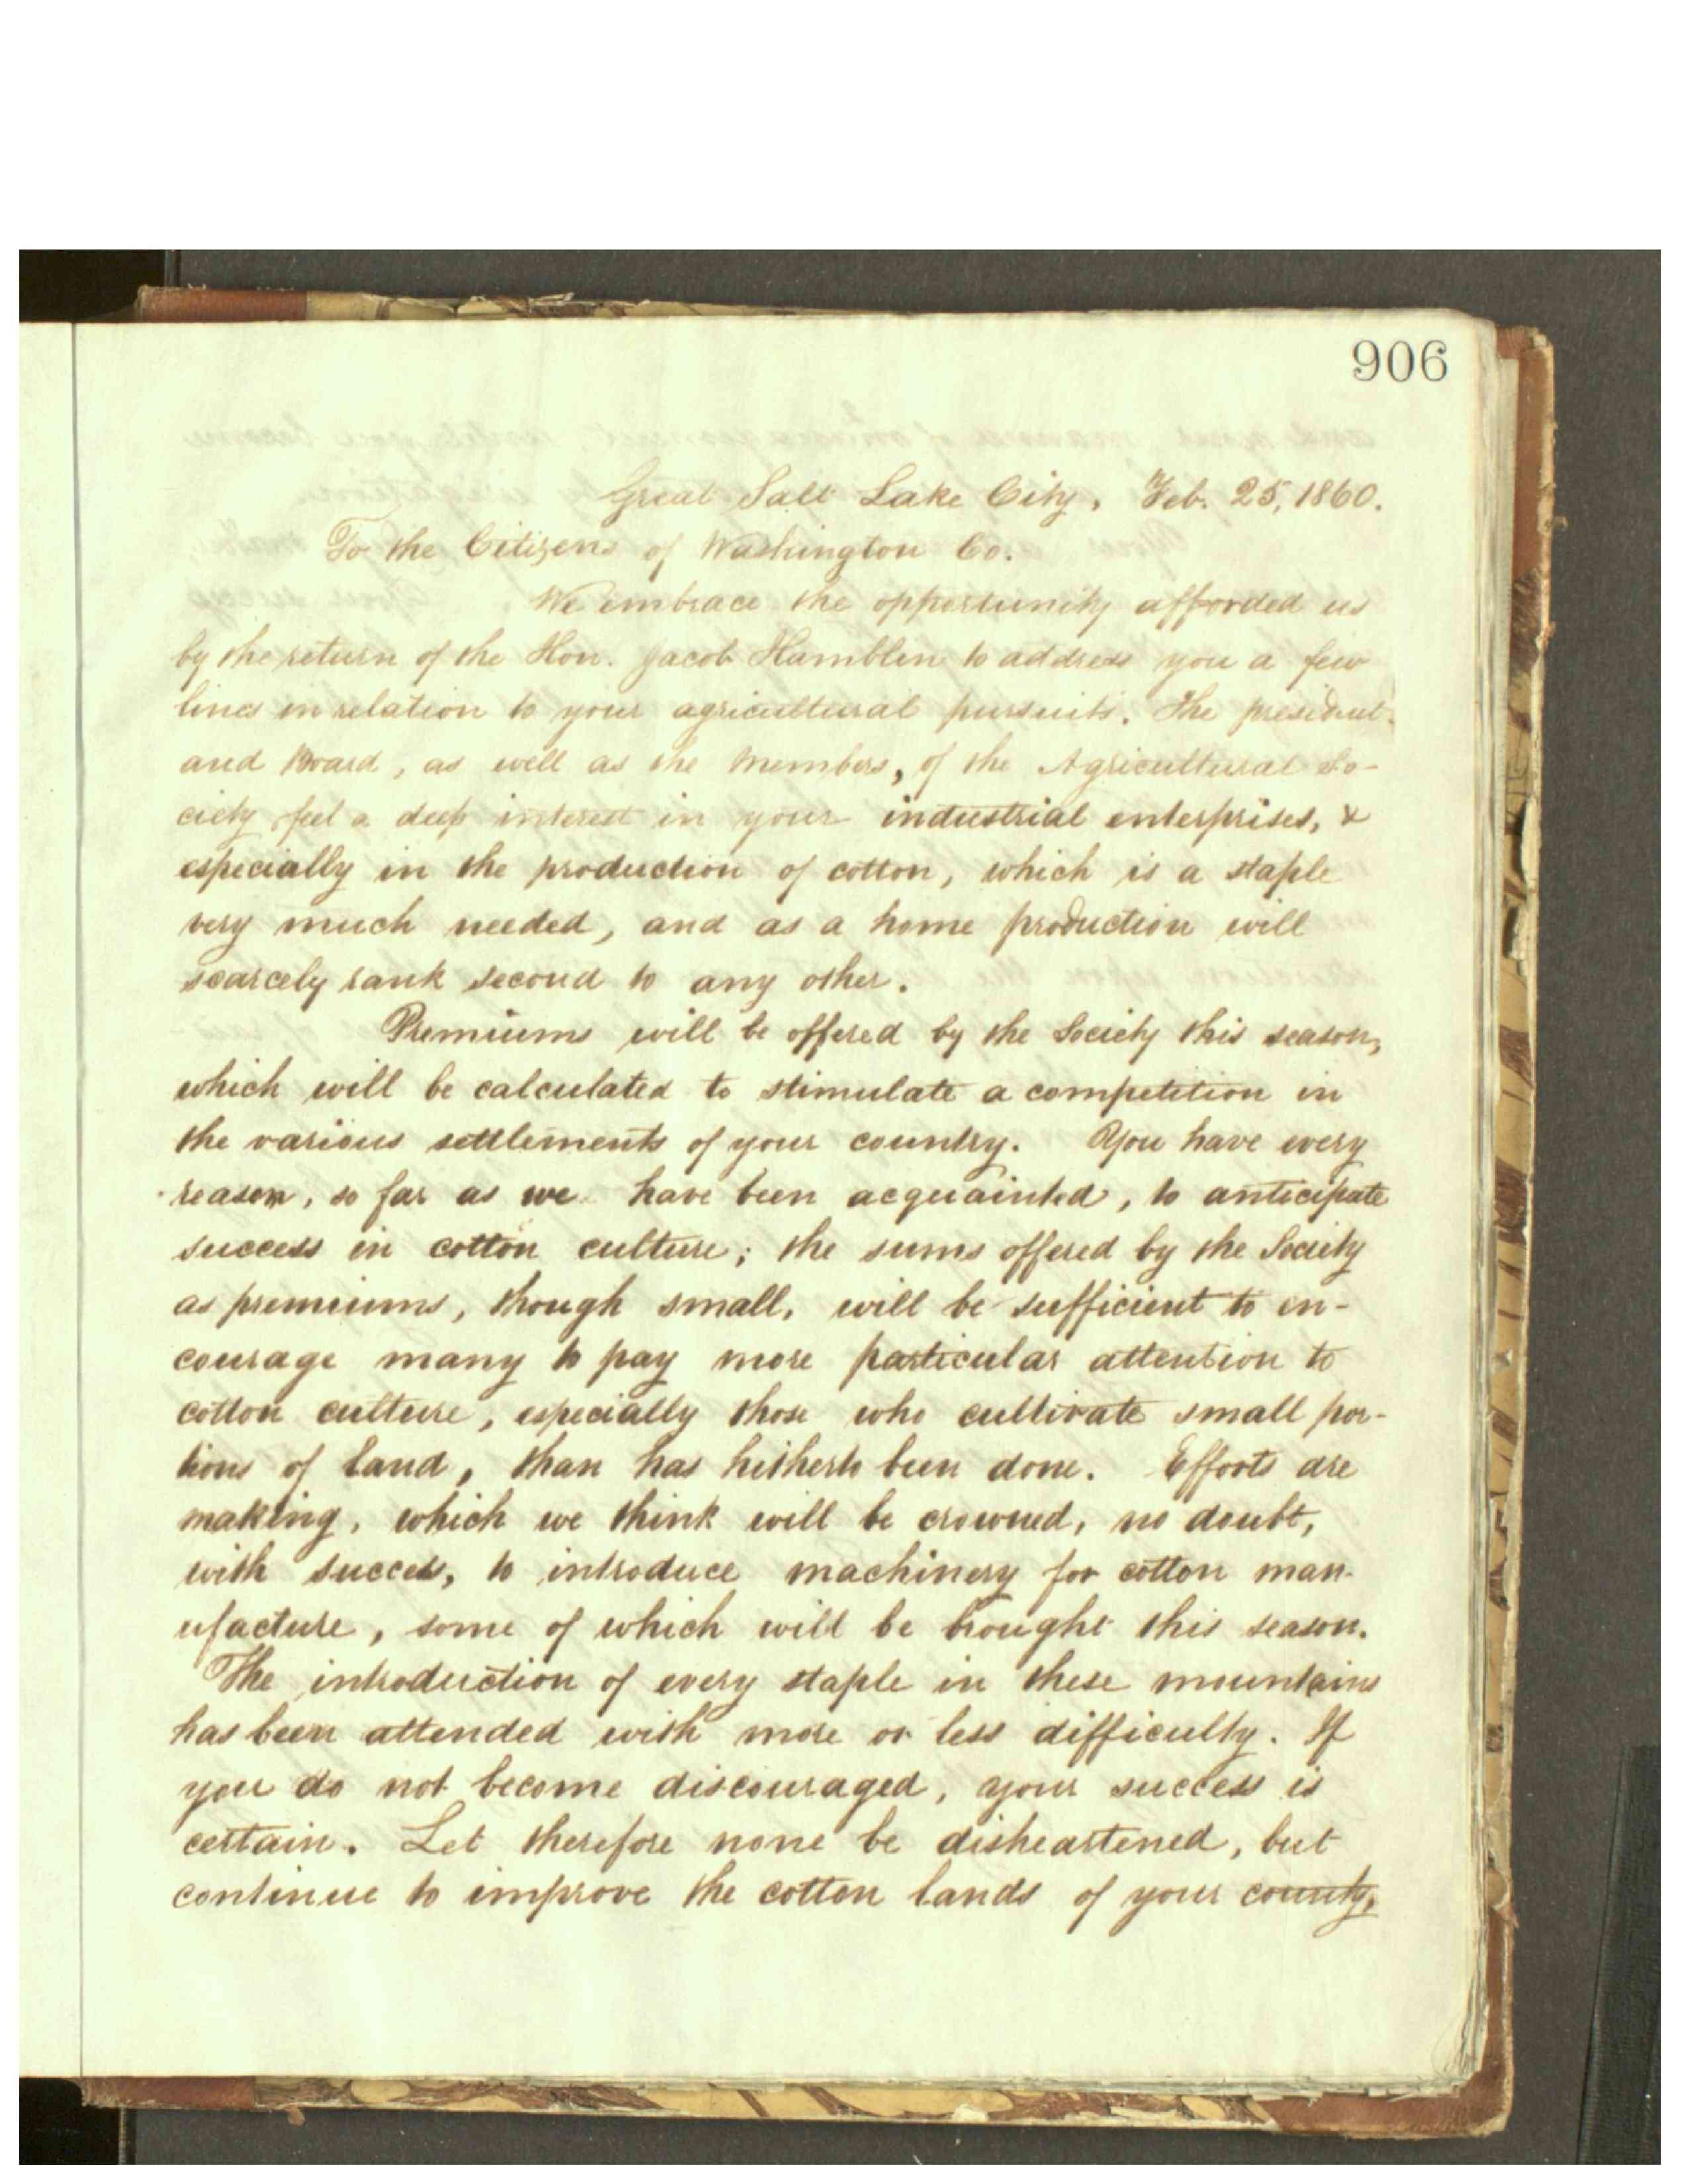 906
Great Salt Lake City, Feb. 25, 1860.
To the Citizens of Washington Co.
We embrace the opportunity afforded us
by the return of the Hon. Jacob Hamblen to address you a few
lines in relation to your agricultural pursuits. The president
and Board, as well as the members, of the Agricultural So-
ciety feel a deep interest in your industrial enterprises, &
especially in the production of cotton, which is a staple
very much needed, and as a home production will
scarcely rank second to any other.
Premiums will be offered by the Society this season,
which will be calculated to stimulate a competition in
the various settlements of your country. You have every
reason, so far as we have been acquainted, to anticipate
success in cotton culture; the sums offered by the Society
as premiums, though small, will be sufficient to en-
courage many to pay more particular attention to
cotton culture, especially those who cultivate small por-
tions of land, than has hitherto been done. Efforts are
making, which we think will be crowned, no doubt,
with success, to introduce machinery for cotton man-
ufacture, some of which will be brought this season.
The introduction of every staple in these mountains
has been attended with more or less difficulty. If
you do not become discouraged, your success is
certain. Let therefore none be disheartened, but
continue to improve the cotton lands of your county,